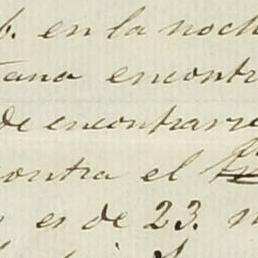 6. en la noch
tana encontr
de encontrarse
contra el
es de 23.